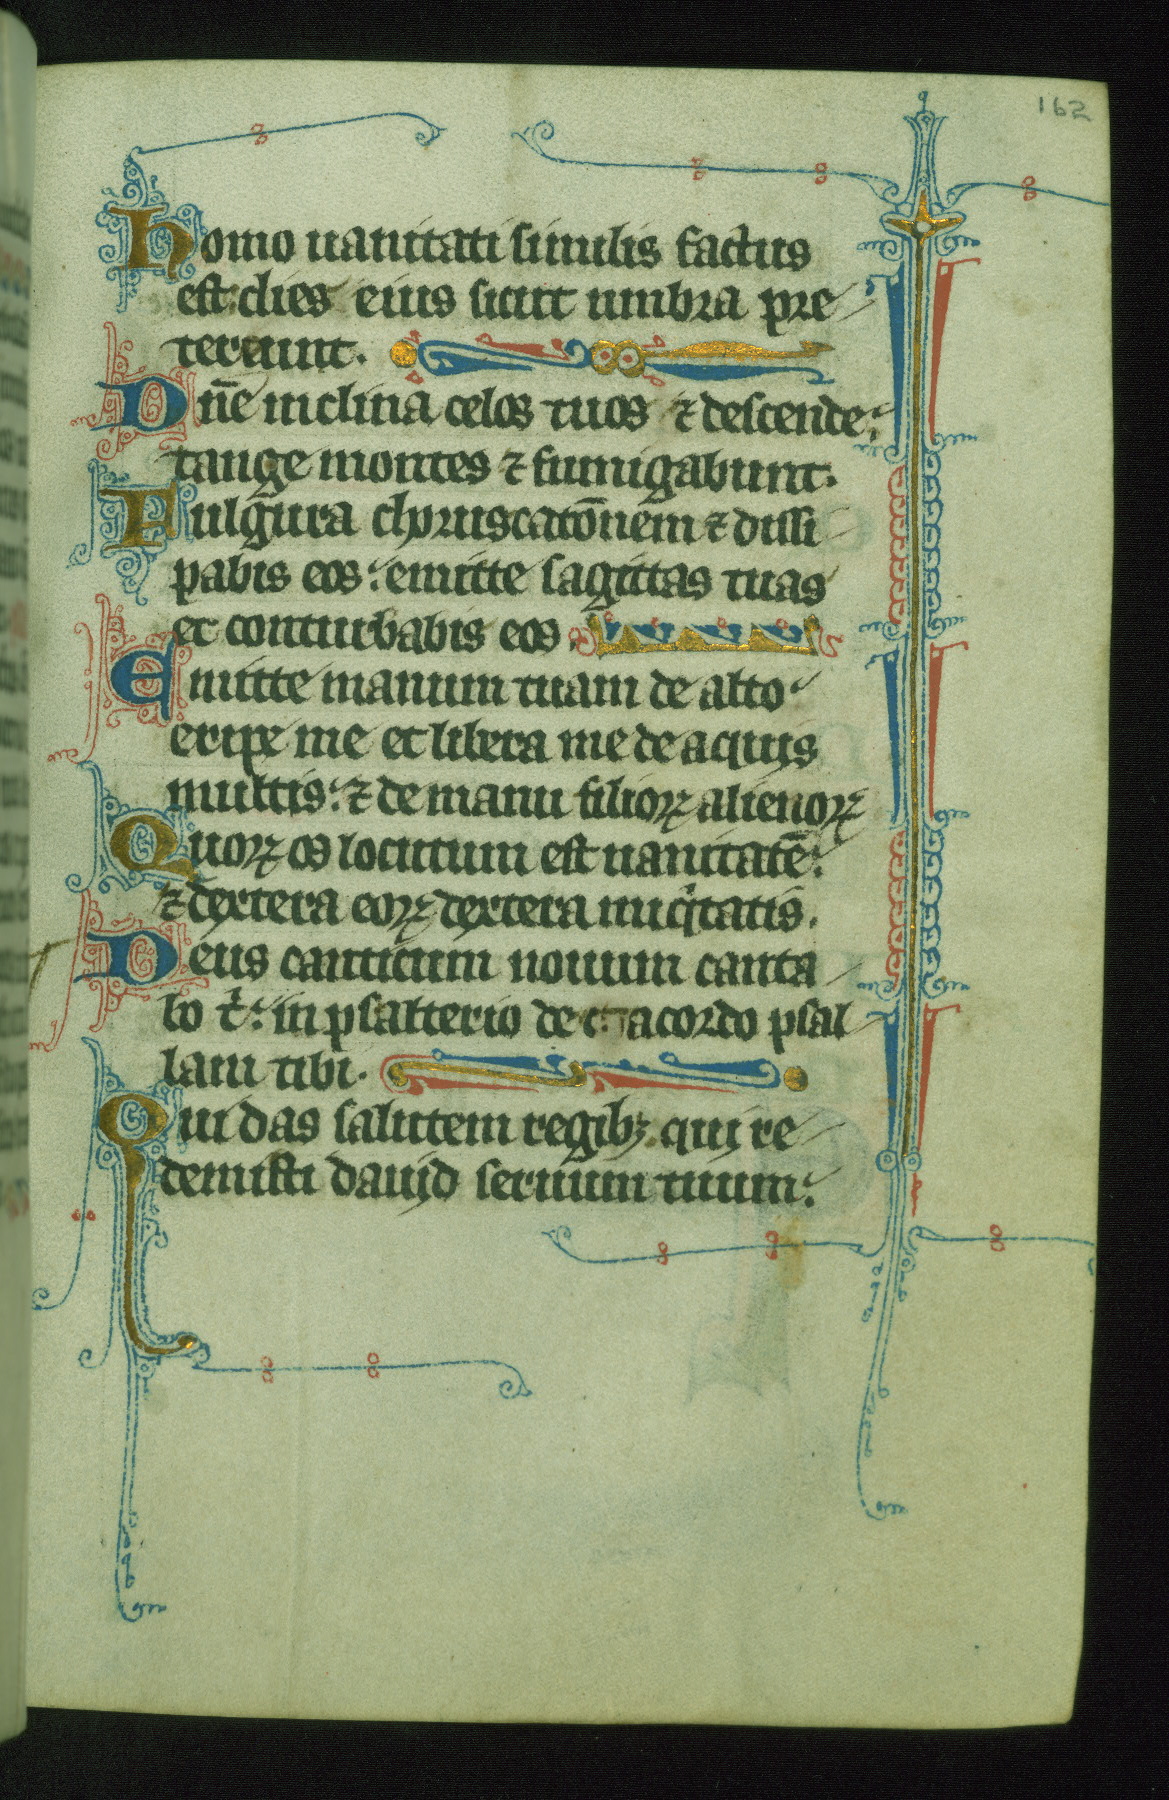 162
Homo uanitati similis factus
est: dies eius sicut umbra pre
tereunt.
Dn̄e inclina celos tuos ⁊ descende:
tange montes ⁊ fumigabunt.
Fulgura choruscatōnem ⁊ dissi
pabis eos: emitte sagittas tuas
et conturbabis eos.
Emitte manum tuam de alto
eripe me et libera me de aquis
multis: ⁊ de manu filioꝝ alienoꝝ
Quoꝝ os locutum est uanitatē:
⁊ dextera eoꝝ dextera iniqͥtatis.
Deus canticum nouum canta
bo tͥ: in psalterio de c acordo psal
lam tibi.
Qui das salutem regibꝫ qui re
demisti dauid seruum tuum: